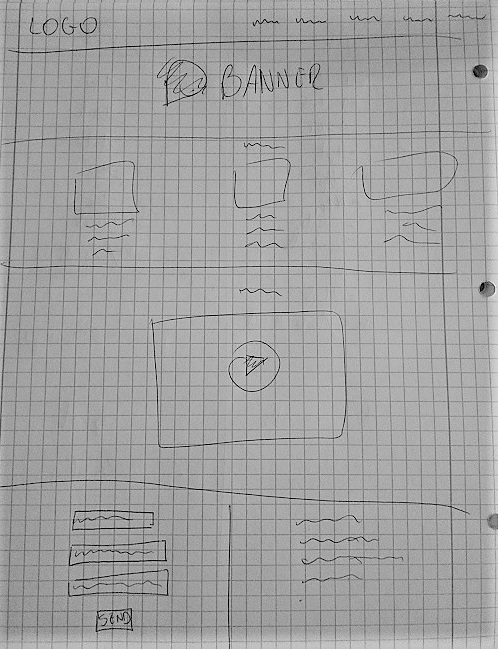 LOGO
BANNER
SEND